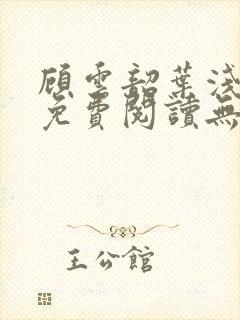 顾雲韶葉淺
免費閱讀無
王公館